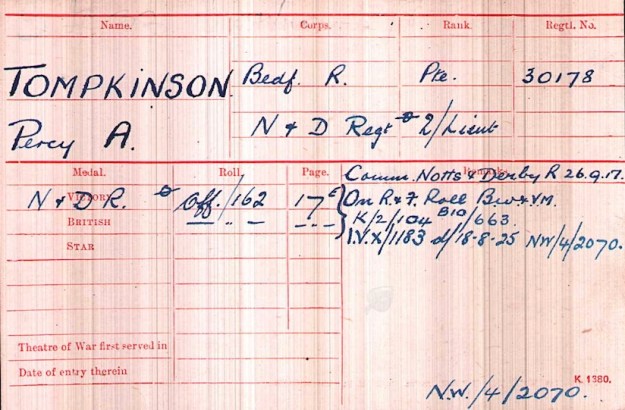 Name. Corps. Rank. Regtl. No.
TOMPKINSON. Bedf. R. Pte. 30178
Percy A. N & D Regt 2/Lieut
Medal. Roll. Page. Remarks.
Comm. Notts & Derby R 26.9.17.
VICTORY N & D R. Off./162 17E On R. & F. Roll B.W. & V.M.
BRITISH — „ — — „ — K/2/104 B10/663.
STAR I.V.X/1183 d/18-8-25 NW/4/2070.
Theatre of War first served in
Date of entry therein
K. 1380.
N.W./4/2070.